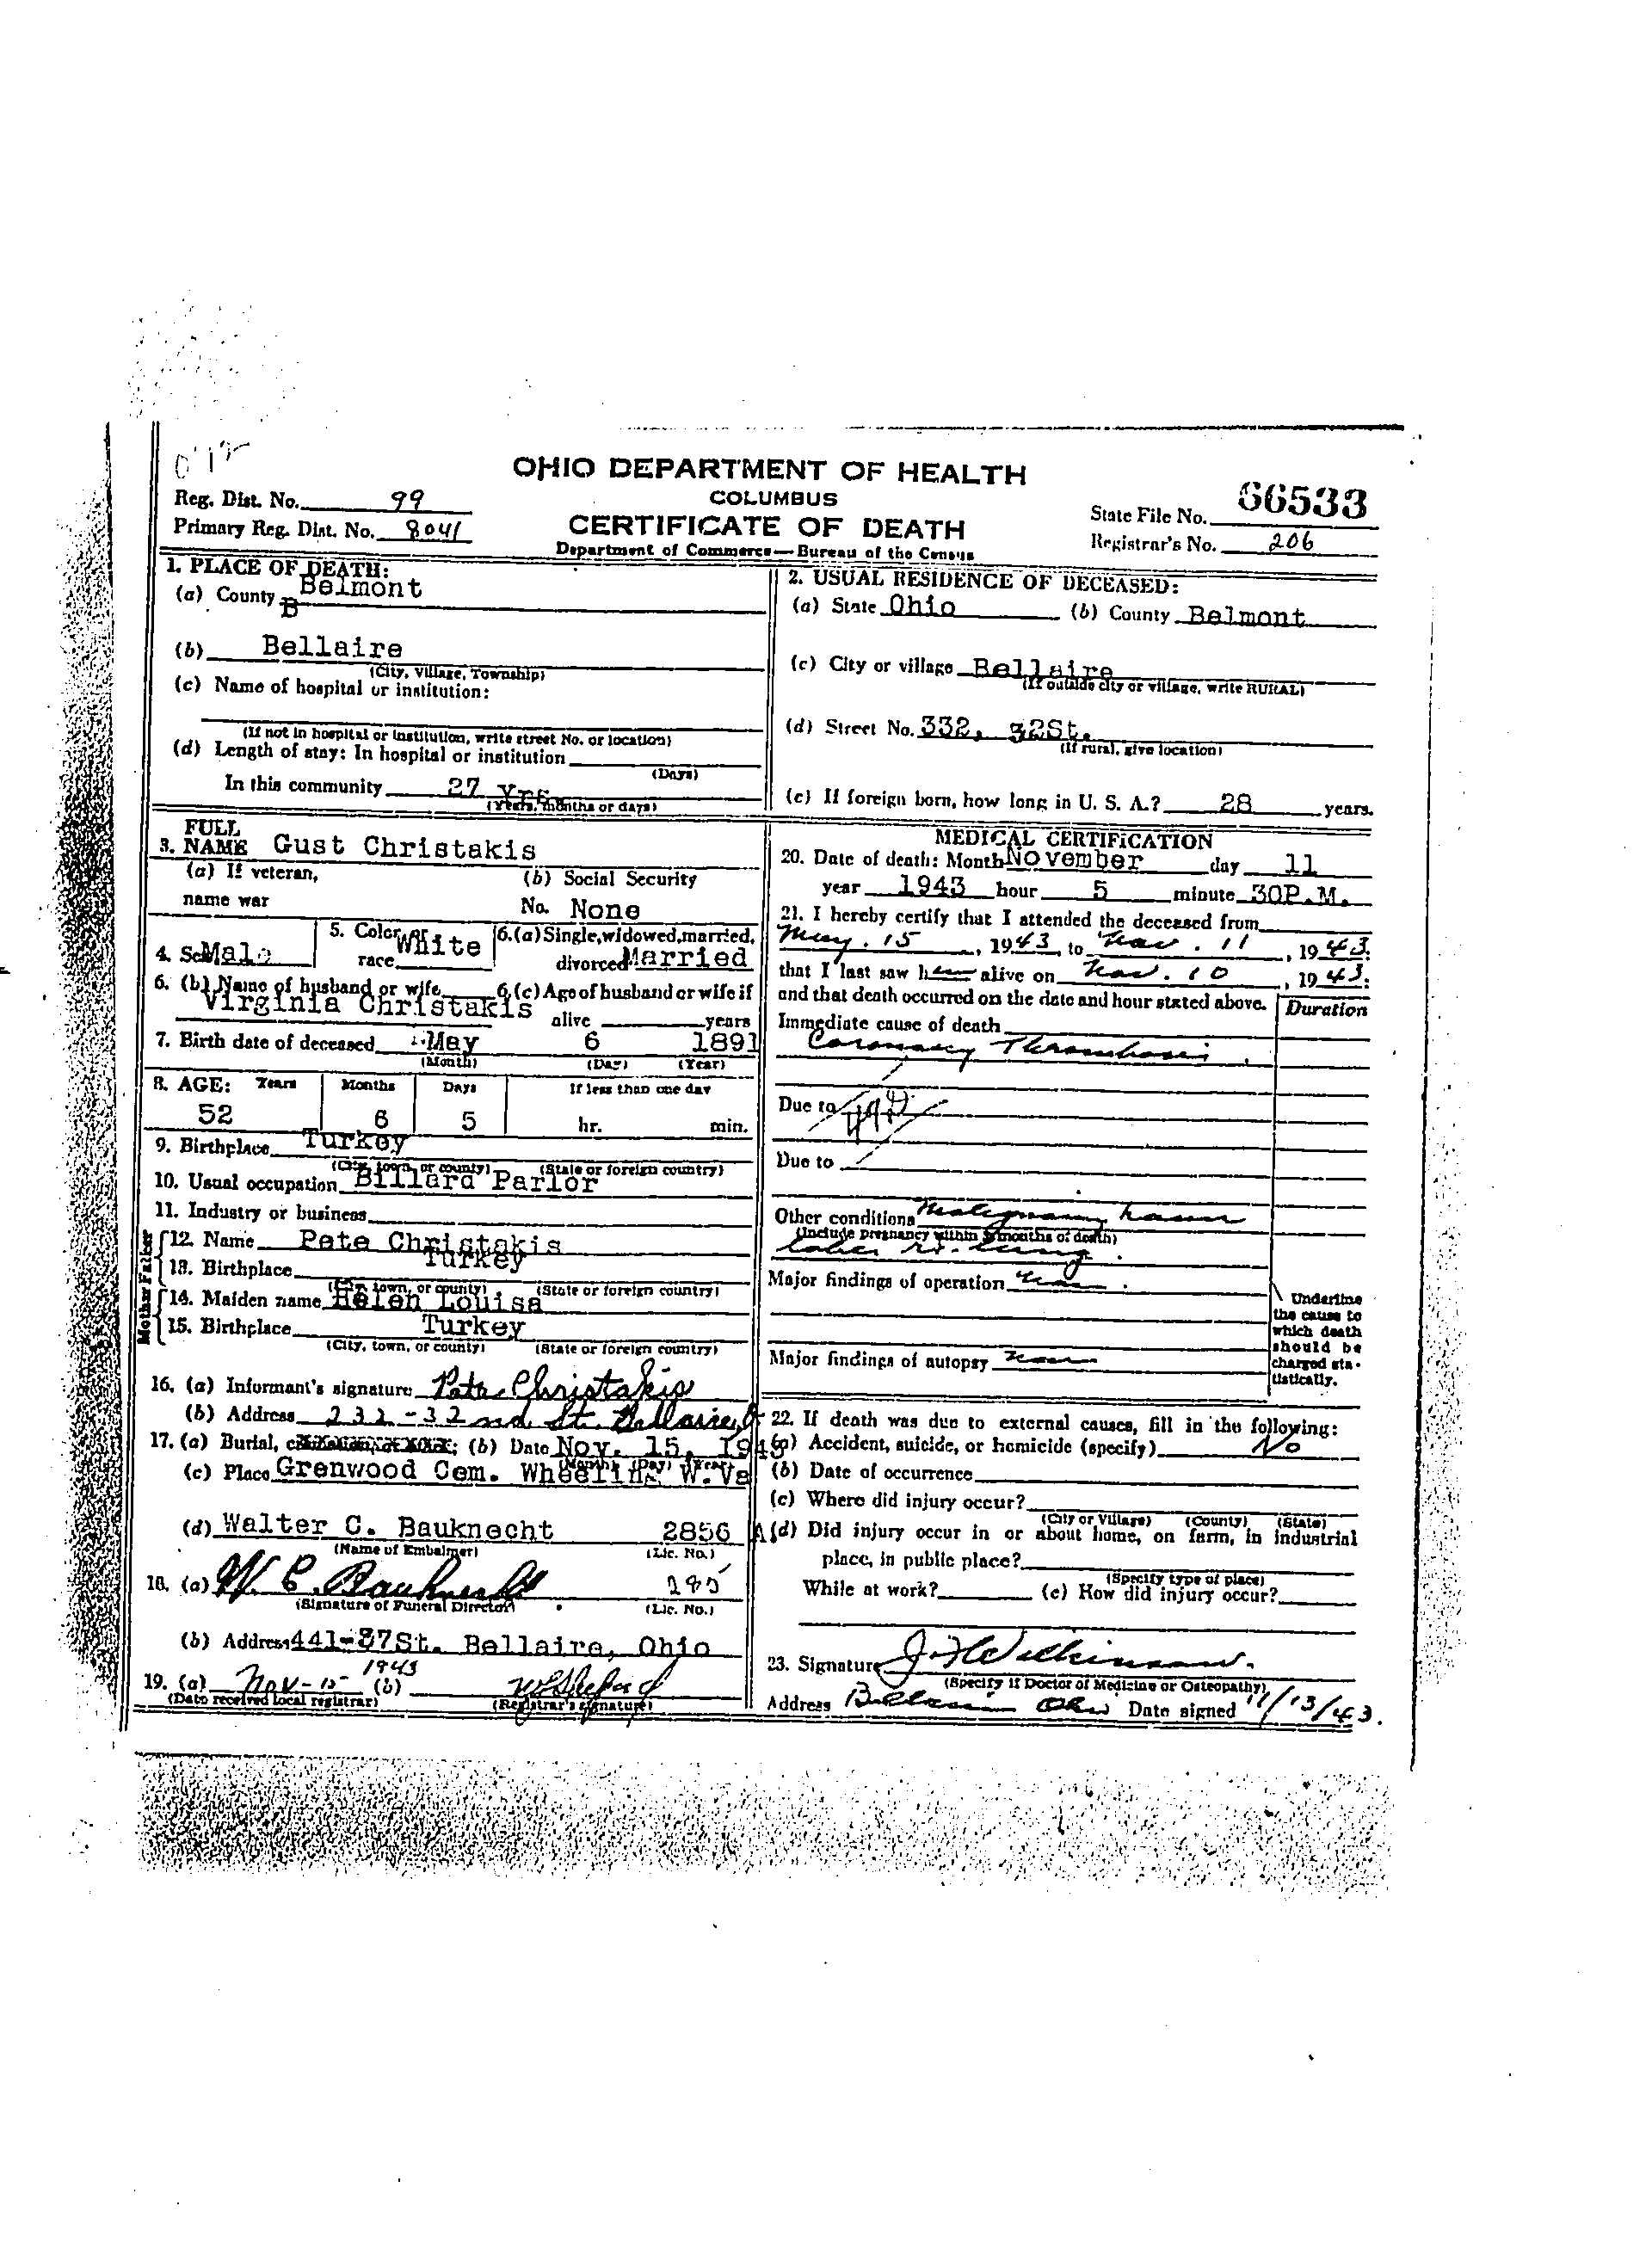 OHIO DEPARTMENT OF HEALTH
COLUMBUS
CERTIFICATE OF DEATH
Department of Commerce—Bureau of the Census
Reg. Dist. No. 99
Primary Reg. Dist. No. 8041
State File No. 66533
Registrar's No. 206
1. PLACE OF DEATH:
(a) County Belmont
B
(b) Bellaire
(City, Village, Township)
(c) Name of hospital or institution:
(If not in hospital or institution, write street No. or location)
(d) Length of stay: In hospital or institution
(Days)
In this community 27 Yrs
(Years, months or days)
2. USUAL RESIDENCE OF DECEASED:
(a) State Ohio (b) County Belmont
(c) City or village Bellaire
(If outside city or village, write RURAL)
(d) Street No. 332, 32St.
(If rural, give location)
(e) If foreign born, how long in U. S. A.? 28 years.
3. FULL NAME Gust Christakis
(a) If veteran, name war
(b) Social Security No. None
4. Sex Male
5. Color or race White
6. (a) Single, widowed, married, divorced Married
6. (b) Name of husband or wife Virginia Christakis
6. (c) Age of husband or wife if alive years
7. Birth date of deceased May 6 1891
(Month) (Day) (Year)
8. AGE: Years Months Days If less than one day
52 6 5 hr. min.
9. Birthplace Turkey
(City, town, or county) (State or foreign country)
10. Usual occupation Billard Parlor
11. Industry or business
Father
12. Name Pete Christakis
13. Birthplace Turkey
(City, town, or county) (State or foreign country)
Mother
14. Maiden name Helen Louisa
15. Birthplace Turkey
(City, town, or county) (State or foreign country)
16. (a) Informant's signature Pete Christakis
(b) Address 232-32nd St. Bellaire, O
17. (a) Burial, (b) Date Nov. 15, 1943
(Month) (Day) (Year)
(c) Place Grenwood Cem. Wheeling W.Va
(d) Walter C. Bauknecht 2856 A
(Name of Embalmer) (Lic. No.)
18. (a) W. C. Bauknecht
(Signature of Funeral Director) (Lic. No.)
(b) Address 441-37St. Bellaire, Ohio
19. (a) Nov-15-1943 (b)
(Date received local registrar) (Registrar's signature)
MEDICAL CERTIFICATION
20. Date of death: Month November day 11
year 1943 hour 5 minute 30P.M.
21. I hereby certify that I attended the deceased from
May. 15, 1943, to Nov. 11, 1943.
that I last saw him alive on Nov. 10, 1943.
and that death occurred on the date and hour stated above.
Duration
Immediate cause of death
Coronary Thrombosis.
Due to
Due to
Other conditions Malignancy lower
(Include pregnancy within 3 months of death)
lobe rt. lung.
Major findings of operation None.
Major findings of autopsy None
Underline
the cause to
which death
should be
charged sta-
tistically.
22. If death was due to external causes, fill in the following:
(a) Accident, suicide, or homicide (specify) No
(b) Date of occurrence
(c) Where did injury occur?
(City or Village) (County) (State)
(d) Did injury occur in or about home, on farm, in industrial
place, in public place?
(Specify type of place)
While at work? (e) How did injury occur?
23. Signature J. H. Wilkinson.
(Specify if Doctor of Medicine or Osteopathy)
Address Bellaire Ohio Date signed 11/13/43.